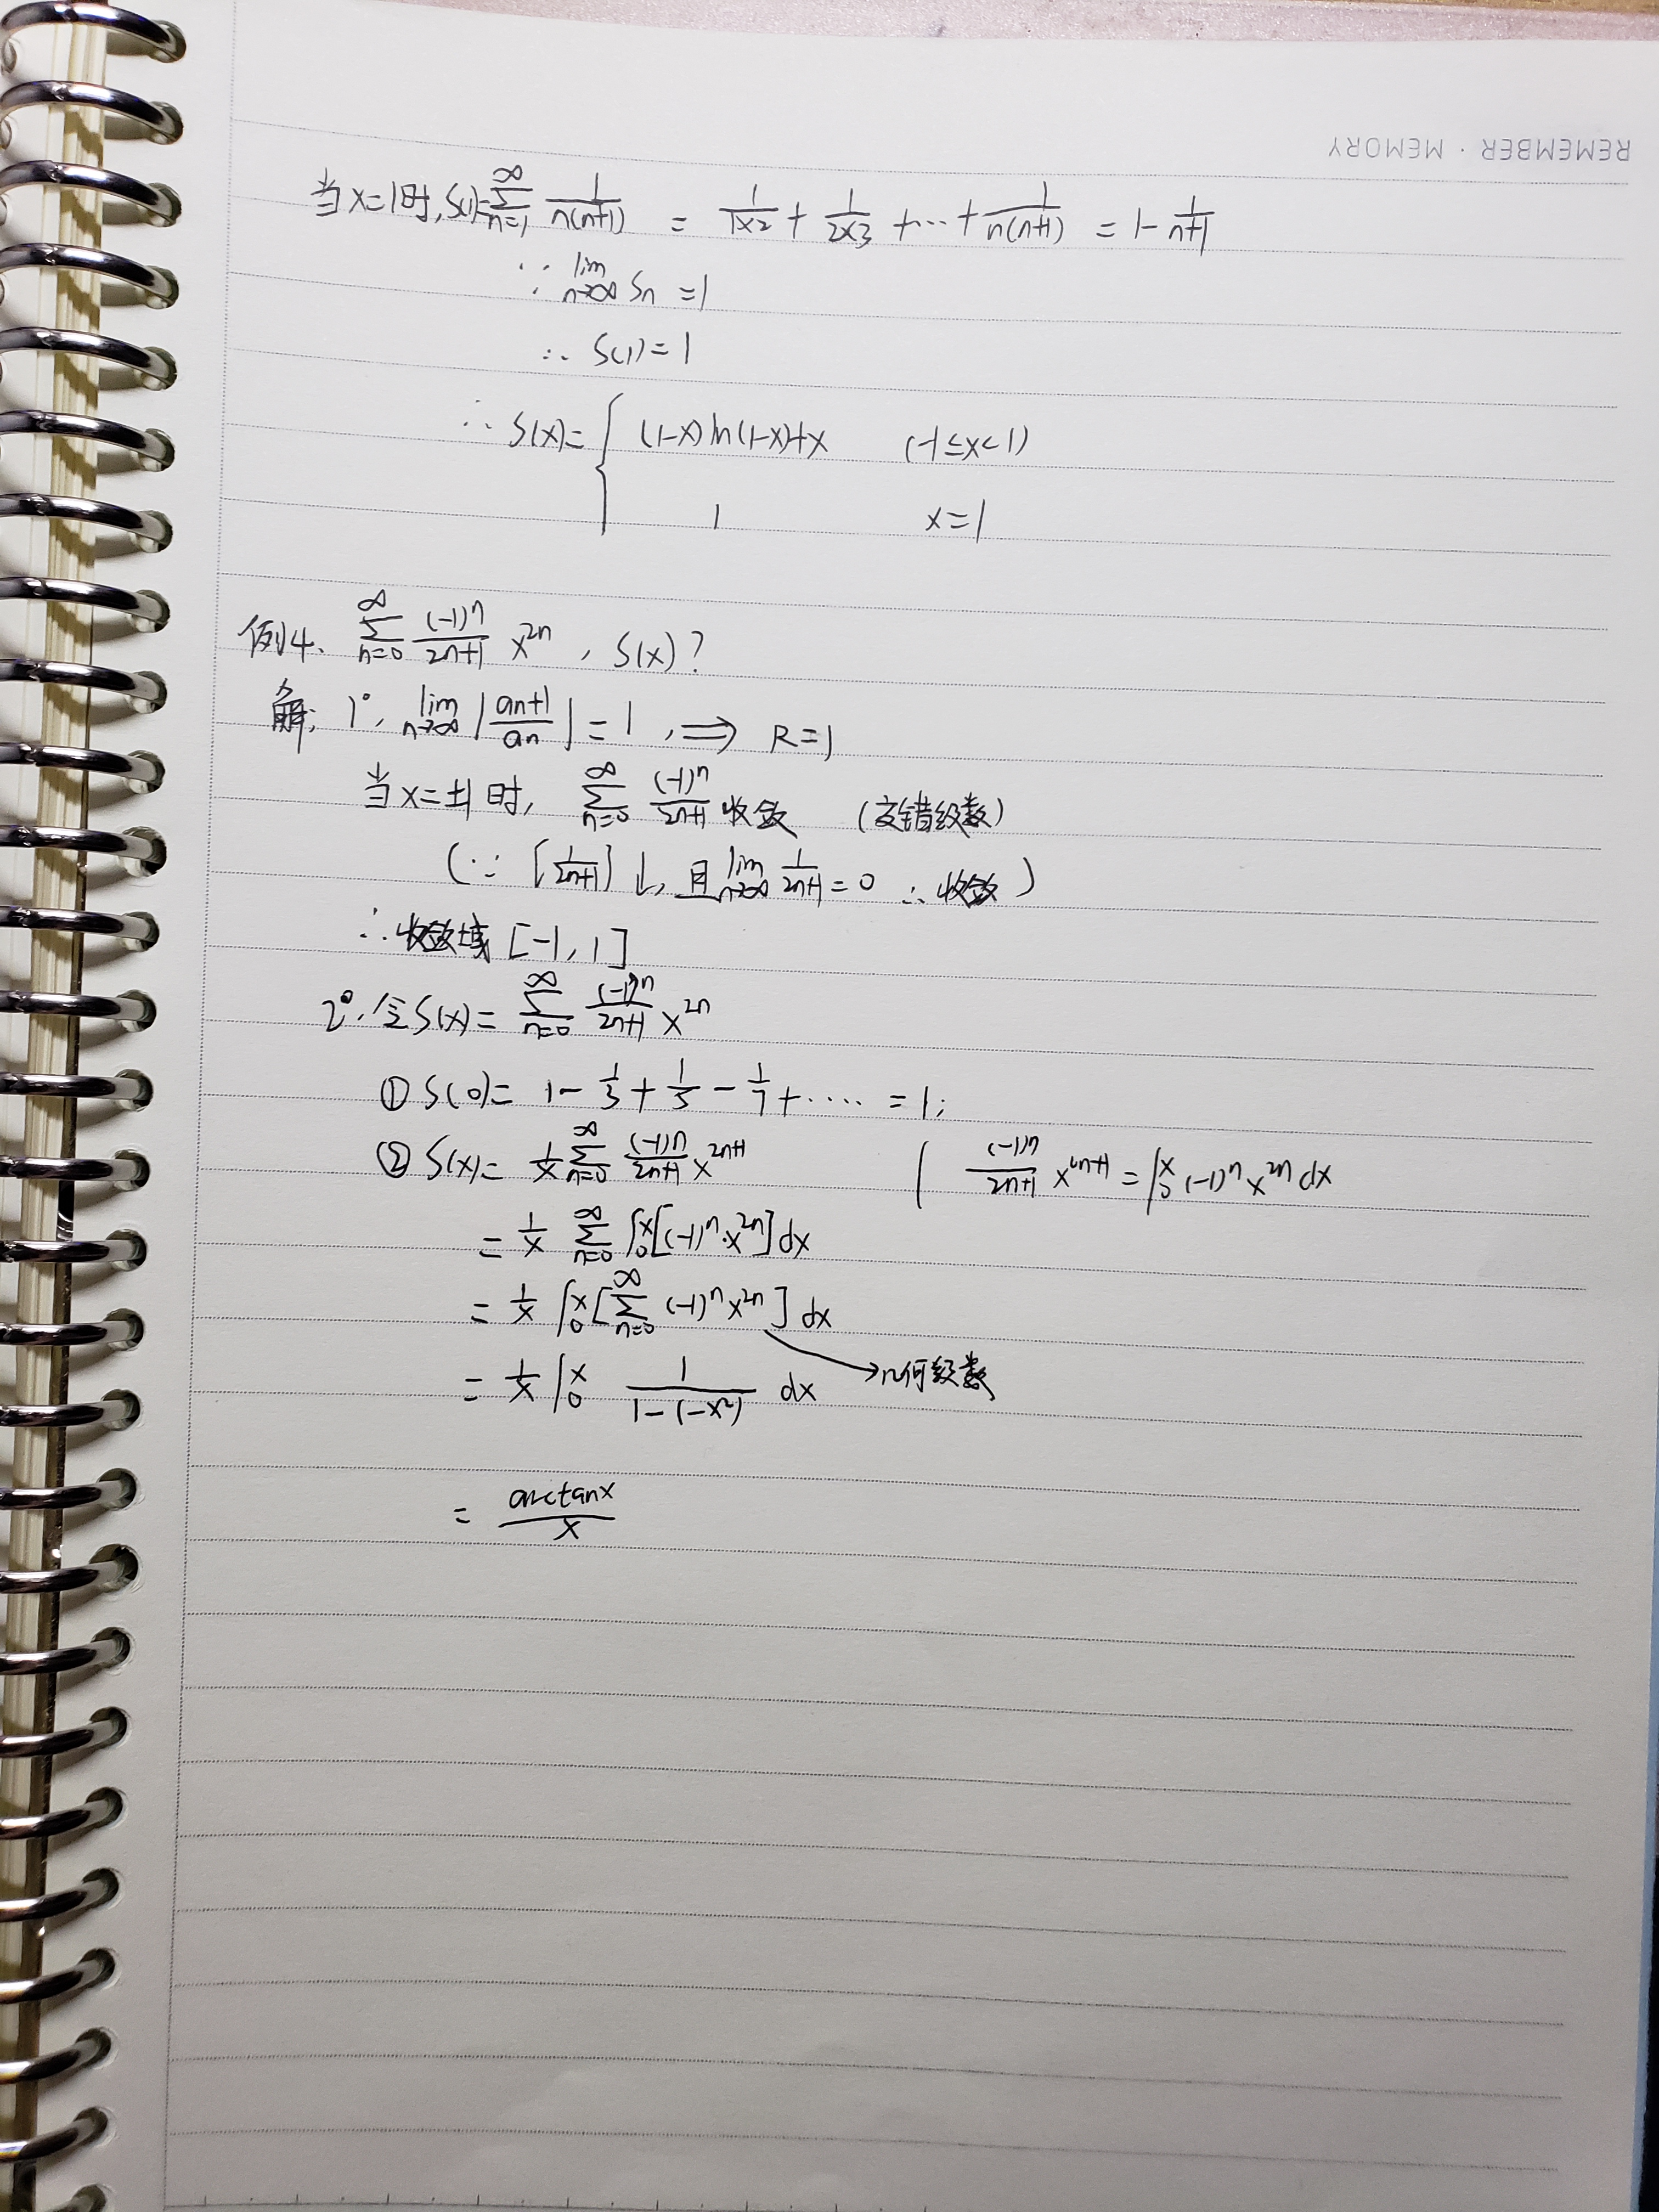 REMEMBER · MEMORY
当x=1时, S(1)=∑_{n=1}^{∞} 1/(n(n+1)) = 1/(1×2) + 1/(2×3) + ... + 1/(n(n+1)) = 1 - 1/(n+1)
∵ lim_{n→∞} Sn = 1
∴ S(1) = 1
∴ S(x) = { (1-x)ln(1-x)+x (-1≤x<1)
1 x=1
例4、 ∑_{n=0}^{∞} (-1)^n/(2n+1) x^{2n} , S(x)?
解: 1°, lim_{n→∞} |an+1/an| = 1 , ⟹ R=1
当x=±1时, ∑_{n=0}^{∞} (-1)^n/(2n+1) 收敛 (交错级数)
(∵ {1/(2n+1)}↓, 且 lim_{n→∞} 1/(2n+1) = 0 ∴ 收敛)
∴ 收敛域 [-1, 1]
2°, 令S(x) = ∑_{n=0}^{∞} (-1)^n/(2n+1) x^{2n}
① S(0) = 1 - 1/3 + 1/5 - 1/7 + ..... = 1;
② S(x) = 1/x ∑_{n=0}^{∞} (-1)^n/(2n+1) x^{2n+1} ( (-1)^n/(2n+1) x^{2n+1} = ∫_0^x (-1)^n x^{2n} dx
= 1/x ∑_{n=0}^{∞} ∫_0^x [(-1)^n·x^{2n}] dx
= 1/x ∫_0^x [∑_{n=0}^{∞} (-1)^n x^{2n}] dx
= 1/x ∫_0^x 1/(1-(-x²)) dx → 几何级数
= arctanx/x